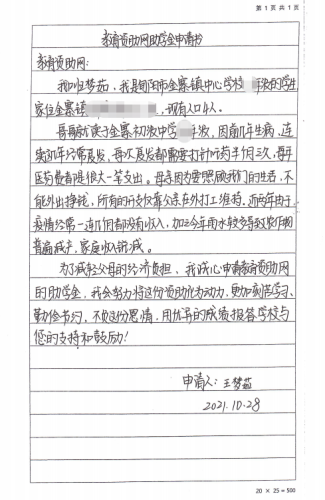 第 1 页 共 1 页
教育资助网助学金申请书
教育资助网:
我叫王梦茹,我是旬阳市金寨镇中心学校 级的学生
家位金寨镇 ,现有人口4人。
哥哥就读于金寨初级中学 年级,因前几年生病,连
续几年经常复发,每次复发都需要打针吃药半个月之久,每年
医药费都是很大一笔支出。母亲因为要照顾我们的生活,不
能外出挣钱,所有的开支仅靠父亲在外打工维持,而两年由于
疫情经常一连几个月都没有收入,加之今年雨水较多导致农作物
普遍减产,家庭收入锐减。
为了减轻父母的经济负担,我诚心申请教育资助网
的助学金,我会努力将这份资助化为动力,更加刻苦学习、
勤俭节约,不负这份恩情,用优异的成绩报答学校与
您的支持和鼓励!
申请人:王梦茹
2021.10.28
20 × 25 = 500